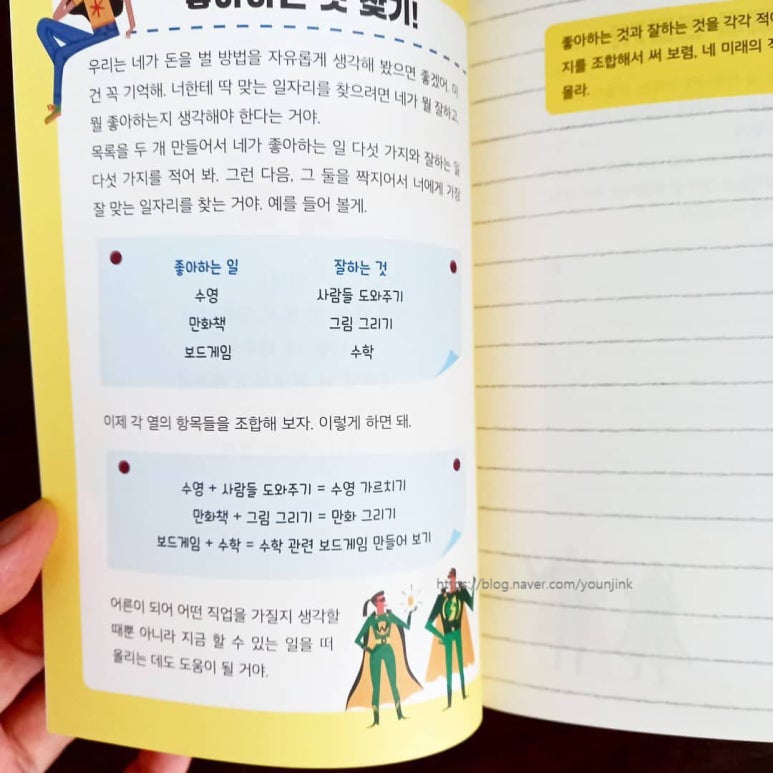 좋아하는 것 찾기!
우리는 네가 돈을 벌 방법을 자유롭게 생각해 봤으면 좋겠어. 이
건 꼭 기억해. 너한테 딱 맞는 일자리를 찾으려면 네가 뭘 잘하고,
뭘 좋아하는지 생각해야 한다는 거야.
목록을 두 개 만들어서 네가 좋아하는 일 다섯 가지와 잘하는 일
다섯 가지를 적어 봐. 그런 다음, 그 둘을 짝지어서 너에게 가장
잘 맞는 일자리를 찾는 거야. 예를 들어 볼게.
좋아하는 일 잘하는 것
수영 사람들 도와주기
만화책 그림 그리기
보드게임 수학
이제 각 열의 항목들을 조합해 보자. 이렇게 하면 돼.
수영 + 사람들 도와주기 = 수영 가르치기
만화책 + 그림 그리기 = 만화 그리기
보드게임 + 수학 = 수학 관련 보드게임 만들어 보기
어른이 되어 어떤 직업을 가질지 생각할
때뿐 아니라 지금 할 수 있는 일을 떠
올리는 데도 도움이 될 거야.
좋아하는 것과 잘하는 것을 각각 적어
지를 조합해서 써 보렴, 네 미래의
몰라.
https://blog.naver.com/younjink